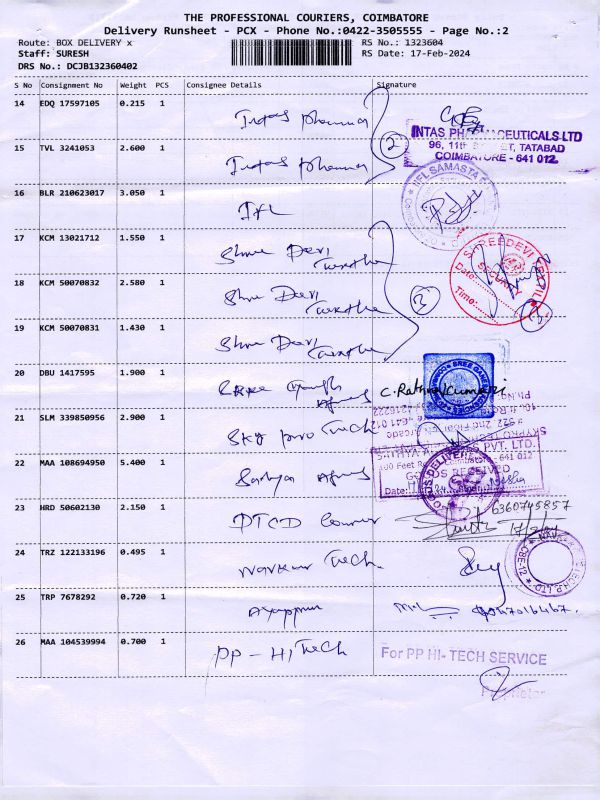 THE PROFESSIONAL COURIERS, COIMBATORE
Delivery Runsheet - PCX - Phone No.:0422-3505555 - Page No.:2
Route: BOX DELIVERY x RS No.: 1323604
Staff: SURESH RS Date: 17-Feb-2024
DRS No.: DCJB132360402
S No Consignment No Weight PCS Consignee Details Signature
14 EDQ 17597105 0.215 1 Intas pharma
INTAS PHARMACEUTICALS LTD
96, 11th STREET, TATABAD
COIMBATORE - 641 012.
15 TVL 3241053 2.600 1 Intas pharma 2
16 BLR 210623017 3.050 1 IFL
IIFL SAMASTA
17 KCM 13021712 1.550 1 Shree Devi Textile
SHREEDEVI TEXTILE
SECURITY
Date:
Time:
18 KCM 50070832 2.580 1 Shree Devi Textile 3
19 KCM 50070831 1.430 1 Shree Devi Textile
20 DBU 1417595 1.900 1 C. Rathna Kumari
21 SLM 339850956 2.900 1 Sky pro Tech
22 MAA 108694950 5.400 1 Sathya Agencies
AGENCIES PVT. LTD.
100 Feet Road, Coimbatore - 641 012
GOODS RECEIVED
Date:
23 HRD 50602130 2.150 1 DTCD Courier 6360745857
17/2/24
24 TRZ 122133196 0.495 1 Tech
CBE-12
25 TRP 7678292 0.720 1 Ayappan
26 MAA 104539994 0.700 1 PP - Hi Tech
For PP HI- TECH SERVICE
Proprietor